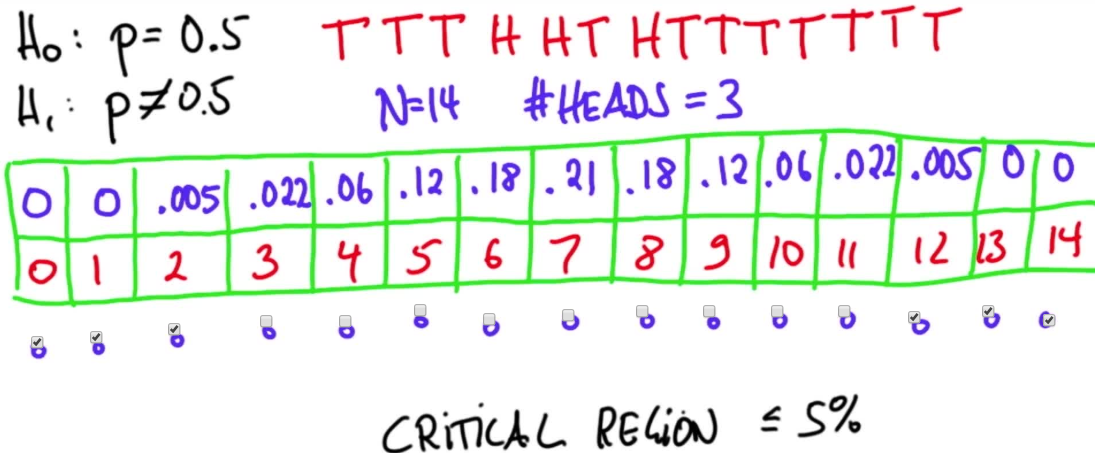 H₀: p = 0.5 T T T H H T H T T T T T T T
H₁: p ≠ 0.5 N=14 #HEADS = 3
0 0 .005 .022 .06 .12 .18 .21 .18 .12 .06 .022 .005 0 0
0 1 2 3 4 5 6 7 8 9 10 11 12 13 14
CRITICAL REGION ≤ 5%